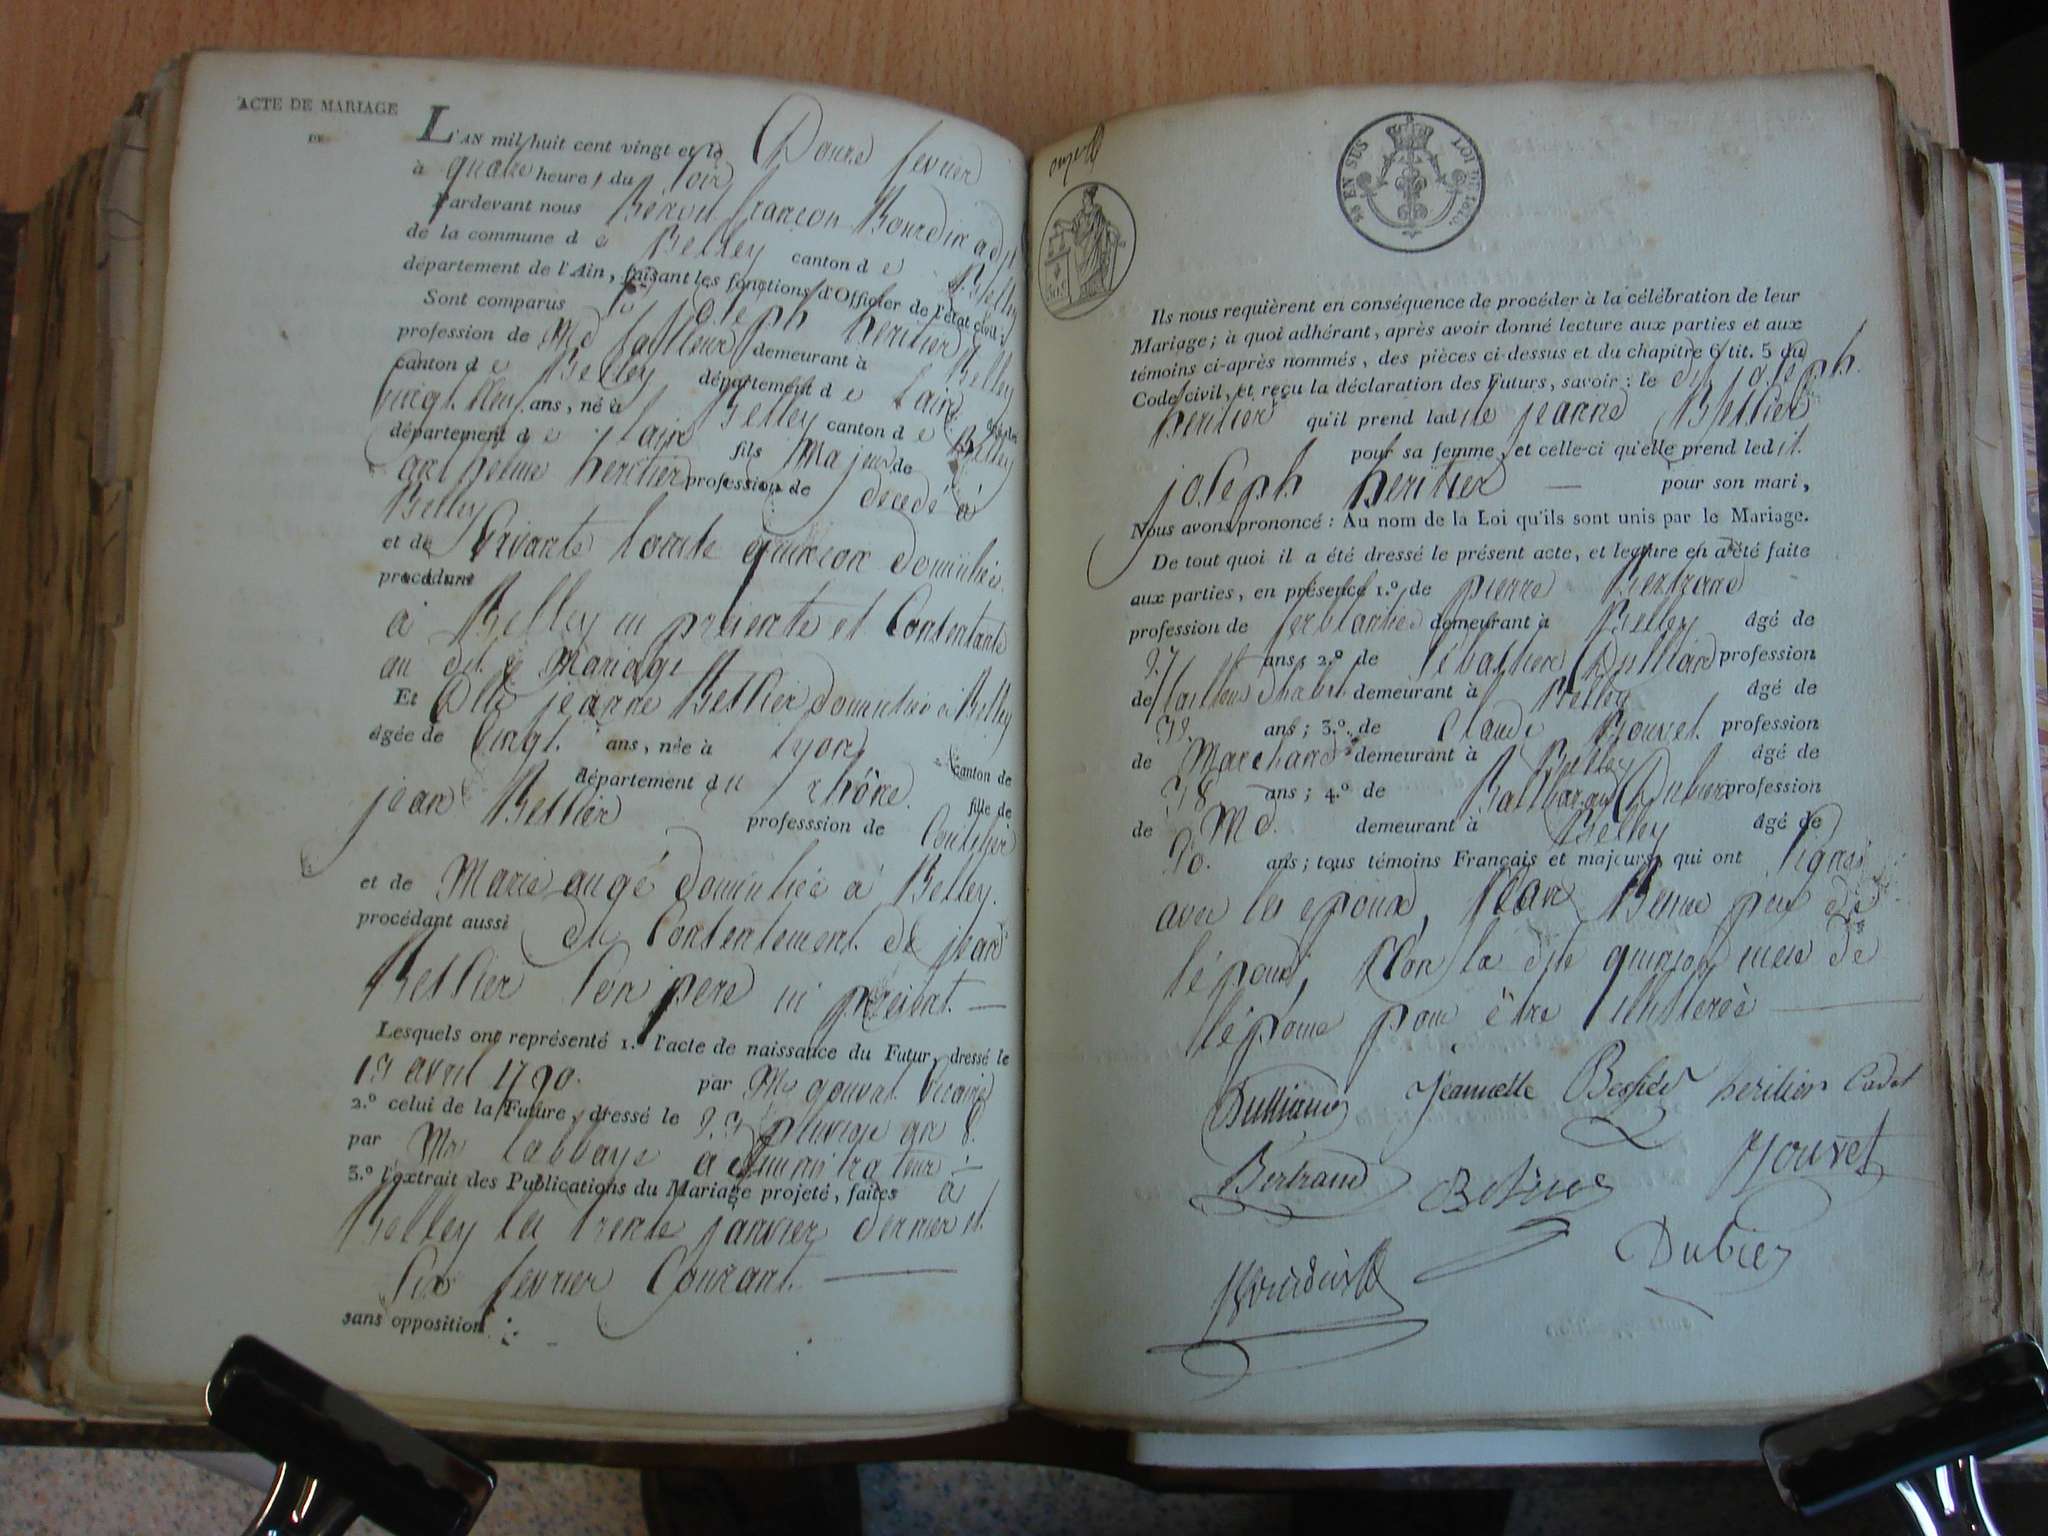 ACTE DE MARIAGE
DE
L'AN mil huit cent vingt et le Douze fevrier
à quatre heures du soir
Pardevant nous Benoit françon Bourdin adjt
de la commune de Belley canton de Belley
département de l'Ain, faisant les fonctions d'Officier de l'état civil.
Sont comparus joseph heritier
profession de Md tailleur demeurant à Belley
canton de Belley département de Lain
vingt neuf ans, né à Belley canton de Belley
département de Lain fils Majeur de
anthelme heritier profession de decedé à
Belley
et de vivante quinson domiciliée
procédant
à Belley ici presente et Contentante
au dit Mariage
Et Dlle jeanne Bettier domiciliée à Belley
âgée de vingt ans, née à Lyon
canton de
département du rhône fille de
jean Bettier professsion de
et de Marie augé domiciliée à Belley.
procédant aussi du Contentement de jean
Bettier Son pere ici present. —
Lesquels ont représenté 1.º l'acte de naissance du Futur, dressé le
13 avril 1790. par Mr gouvat vicaire
2.º celui de la Future, dressé le 23 pluviose an 8.
par Mr Labbaye administrateur —
3.º l'extrait des Publications du Mariage projeté, faites à
Belley les trente janvier dernier et
Six fevrier Courant. —
sans opposition
LOI DE 1816.
Ils nous requièrent en conséquence de procéder à la célébration de leur
Mariage ; à quoi adhérant, après avoir donné lecture aux parties et aux
témoins ci-après nommés, des pièces ci-dessus et du chapitre 6 tit. 5 du
Code civil, et reçu la déclaration des Futurs, savoir : le dit joseph
heritier qu'il prend ladite jeanne Bettier
pour sa femme, et celle-ci qu'elle prend ledit
joseph heritier — pour son mari,
Nous avons prononcé : Au nom de la Loi qu'ils sont unis par le Mariage.
De tout quoi il a été dressé le présent acte, et lecture en a été faite
aux parties, en présence 1.º de pierre Bertrand
profession de ferblantier demeurant à Belley âgé de
27 ans; 2.º de Sébastien Dullian profession
de tailleur d'habit demeurant à Belley âgé de
32 ans; 3.º de Claude Bouvet profession
de Marchand demeurant à Belley âgé de
38 ans; 4.º de Balthazard Dubier profession
de Md. demeurant à Belley âgé de
ans; tous témoins Français et majeurs, qui ont Signé
avec les epoux, pere de
lépouse, Non la dite quinson mere de
lépoux pour être illitterée —
Dulliand Jeannette heritier Cadet
Bertrand Bouvet
Dubier
Bourdin